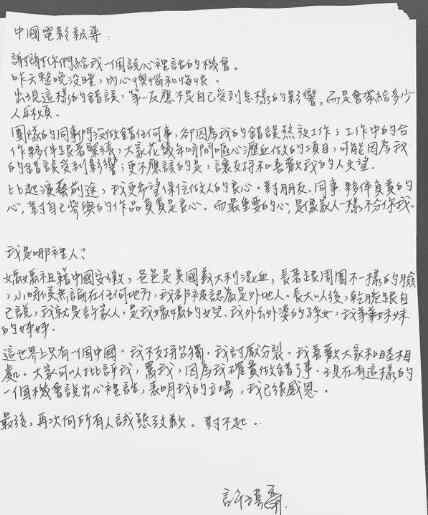 中國電影報導：
謝謝你們給我一個說心裡話的機會。
昨天整晚沒睡，內心懊惱和悔恨。
出現這樣的錯誤，第一反應不是自己受到怎樣的影響，而是會帶給多少
人麻煩。
團隊的同事們沒做錯任何事，卻因為我的錯誤熬夜工作；工作中的合
作夥伴跟著緊張，大家花幾年時間嘔心瀝血做的項目，可能因為我
的錯誤受到影響；更不應該的是，讓支持和喜歡我的人失望。
比起演藝前途，我更希望保住做人的良心。對朋友、同事、夥伴負責的
心，對自己參與的作品負責是良心。而最重要的心，是像家人一樣不分你我。
我是哪裡人？
媽媽祖籍中國安徽，爸爸是美國義大利混血，長著跟周圍不一樣的臉
，小時候無論在任何地方，我都被認為是外地人。長大以後，乾脆跟自
己說，我就是許家人。是我媽媽的女兒，我外公外婆的孫女，我弟弟妹妹
的姊姊。
這世界上只有一個中國，我不支持台獨。我討厭分裂。我喜歡大家和睦相
處。大家可以批評我，罵我，因為我確實做錯了事。現在有這樣的
一個機會說出心裡話，表明我的立場，我已很感恩。
最後，再次向所有人誠懇致歉。對不起。
許瑋甯